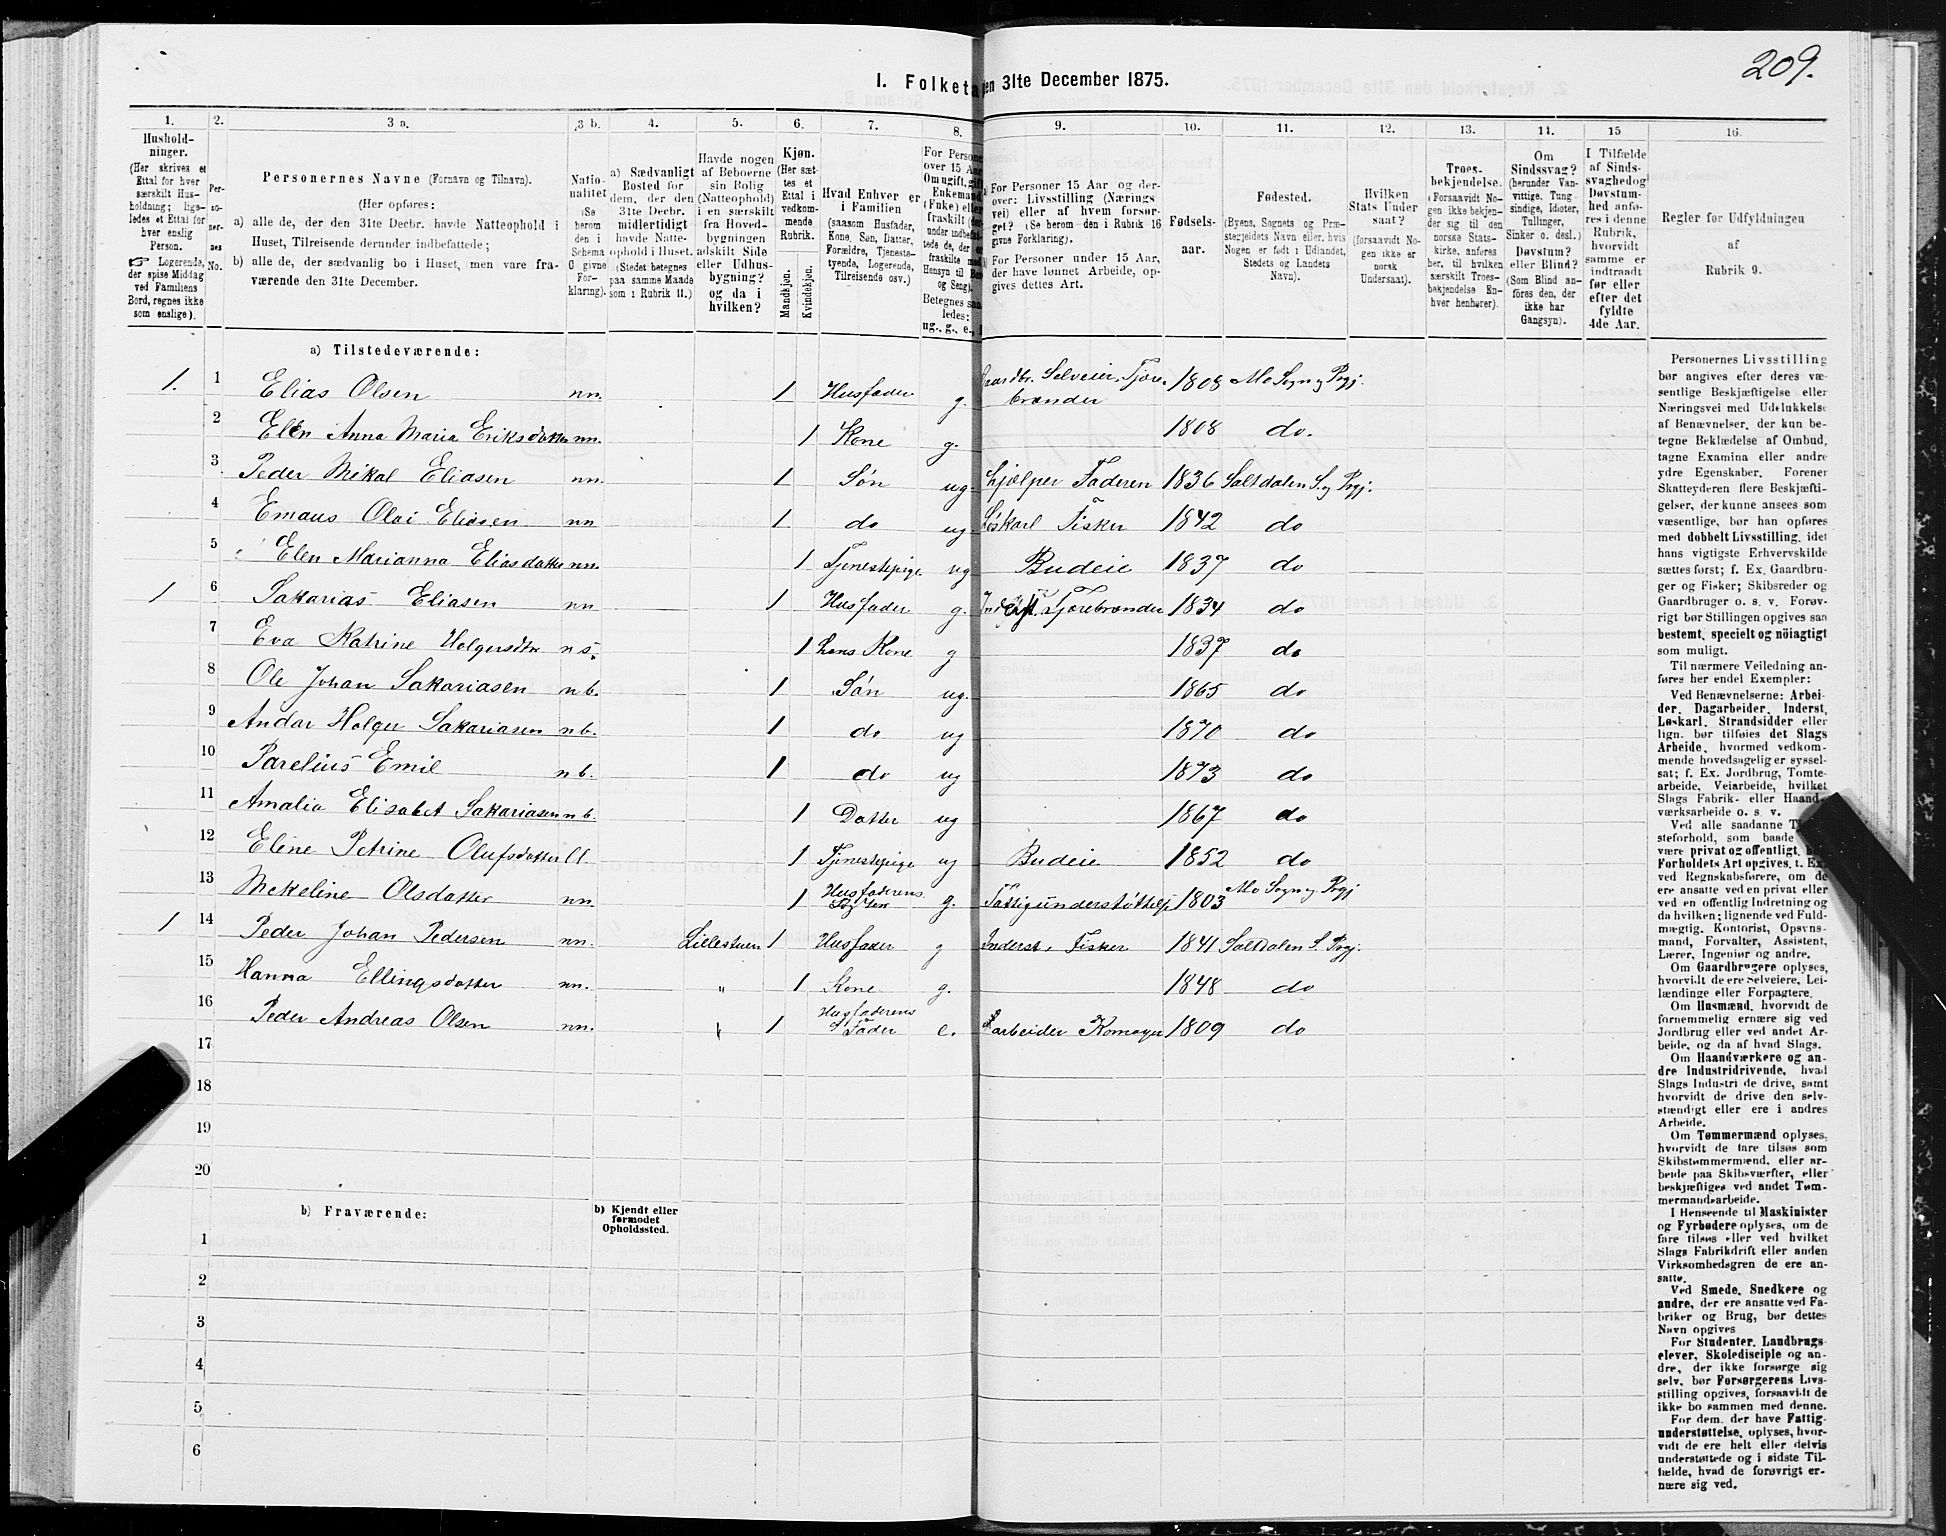 209.
I. Folketa en 31te December 1875.
1. 2. 3 a. 3 b. 4. 5. 6. 7. 8. 9. 10. 11. 12. 13. 14. 15 16.
Hushold-
ninger.
(Her skrives et
Ettal for hver
særskilt Hus-
holdning; lige-
ledes et Ettal for
hver enslig
Person.
☞ Logerende,
der spise Middag
ved Familiens
Bord, regnes ikke
som enslige).
Per-
so-
ner-
nes
No.
Personernes Navne (Fornavn og Tilnavn).
(Her opføres:
a) alle de, der den 31te Decbr. havde Natteophold i
Huset, Tilreisende derunder indbefattede;
b) alle de, der sædvanlig bo i Huset, men vare fra-
værende den 31te December.
Natio-
nalitet
(Se
herom
den i
Schema
C givne
For-
klaring).
a) Sædvanligt
Bosted for
dem, der den
31te Decbr.
midlertidigt
havde Natte-
ophold i Huset.
(Stedet betegnes
paa samme Maade
som i Rubrik 11.)
Havde nogen
af Beboerne
sin Bolig
(Natteophold)
i en særskilt
fra Hoved-
bygningen
adskilt Side
eller Udhus-
bygning?
og da i
hvilken?
Kjøn.
(Her sæt-
tes et
Ettal i
vedkom-
mende
Rubrik.
Mandkjøn.
Kvindekjøn.
Hvad Enhver er
i Familien
(saasom Husfader,
Kone, Søn, Datter,
Forældre, Tjeneste-
tyende, Logerende,
Tilreisende osv.)
For Persone
over 15 Aar
Om ugift, gift
Enkemand
(Fnke) eller
fraskilt
under indbefat-
tede de, der er
fraskilte med
Hensyn til Bo
og Seng).
Betegnes saa
ledes:
ug., g., e.,
a) For Personer 15 Aar og der-
over: Livsstilling (Nærings
vei) eller af hvem forsør-
get? (Se herom den i Rubrik 16
givne Forklaring).
b) For Personer under 15 Aar,
der have lønnet Arbeide, op-
gives dettes Art.
Fødsels-
aar.
Fødested.
(Byens, Sognets og Præ-
stegjeldets Navn eller, hvis
Nogen er født i Udlandet,
Stedets og Landets
Navn).
Hvilken
Stats Under
saat?
(forsaavidt No-
gen ikke er
norsk
Undersaat).
Troes-
bekjendelse.
(Forsaavidt No-
gen ikke bekjen-
der sig til den
norske Stats-
kirke, anføres
her, til hvilken
særskilt Troes-
bekjendelse En-
hver henhører).
Om
Sindssvag?
(herunder Van-
vittige, Tung-
sindige, Idioter,
Tullinger,
Sinker o. desl.)
Døvstum?
eller Blind?
(Som Blind an-
føres den, der
ikke har
Gangsyn).
I Tilfælde
af Sinds-
svaghed og
Døvstum-
hed anfø-
res i denne
Rubrik,
hvorvidt
samme er
indtraadt
før eller
efter det
fyldte
4de Aar.
Regler for Udfyldningen
af
Rubrik 9.
a) Tilstedeværende:
1. 1 Elias Olsen nn. 1 Husfader g. Gaardbr. Selveier, Tjære- brænder 1808 Mo Sogn og Prgj.
2 Elen Anna Maria Eriksdatter nn. 1 Kone g. 1808 do.
3 Peder Mikal Eliasen nn. 1 Søn ug. hjælper Faderen 1836 Saltdalen S. og Prgj.
4 Emaus Olai Eliasen nn 1 do ug. Løskarl Fisker 1842 do
5 Elen Marianna Eliasdatter nn. 1 Tjenestepige ug Budeie 1837 do
1 6 Sakarias Eliasen nn 1 Husfader g. Tjærebrænder 1834 do
7 Eva Katrine Holgersdtr n s. 1 hans Kone g 1837 do
8 Ole Johan Sakariasen n b. 1 Søn ug. 1865 do
9 Andor Holger Sakariasen n b. 1 do ug 1870 do
10 Parelius Emil n b. 1 do ug 1873 do
11 Amalia Elisabet Sakariasen n b. 1 Datter ug 1867 do
12 Eline Petrine Olufsdatter ll 1 Tjenestepige ug Budeie 1852 do
13 Mekeline Olsdatter nn. 1 Husfaderens g. Fattigunderstøttelse 1803 Mo Sogn og Prgj
1 14 Peder Johan Pedersen nn. Lillestuen 1 Husfader g Inderst, Fisker 1841 Saltdalen S. Prgj.
15 Hanna Ellingsdatter nn. " 1 Kone g. 1848 do
16 Peder Andreas Olsen nn. " 1 Husfaderens Fader e. arbeider Komager 1809 do
17
18
19
20
b) Fraværende:
b) Kjendt eller
formodet
Opholdssted.
1
2
3
4
5
6
Personernes Livsstilling
bør angives efter deres væ-
sentlige Beskjæftigelse eller
Næringsvei med Udelukkelse
af Benævnelser, der kun be-
tegne Beklædelse af Ombud,
tagne Examina eller andre
ydre Egenskaber. Forener
Skatteyderen flere Beskjæfti-
gelser, der kunne ansees som
væsentlige, bør han opføres
med dobbelt Livsstilling, idet
hans vigtigste Erhvervskilde
sættes først; f. Ex. Gaardbru-
ger og Fisker; Skibsreder og
Gaardbruger o. s. v. Forøv-
rigt bør Stillingen opgives saa
bestemt, specielt og nöiagtigt
som muligt.
Til nærmere Veiledning an-
føres her endel Exempler:
Ved Benævnelserne: Arbei-
der, Dagarbeider, Inderst,
Løskarl, Strandsidder eller
lign. bør tilføies det Slags
Arbeide, hvormed vedkom-
mende hovedsagelig er syssel-
sat; f. Ex. Jordbrug, Tomte-
arbeide, Veiarbeide, hvilket
Slags Fabrik- eller Haand-
værksarbeide o. s. v.
Ved alle saadanne
steforhold, som baade
være privat og offentligt,
Forholdets Art opgives, t. Ex.
ved Regnskabsførere, om de
ere ansatte ved en privat eller
ved en offentlig Indretning og
da hvilken; lignende ved Fuld-
mægtig, Kontorist, Opsyns-
mand, Forvalter, Assistent,
Lærer, Ingeniør og andre.
Om Gaardbrugere oplyses,
hvorvidt de ere Selveiere, Lei-
lændinge eller Forpagtere.
Om Husmænd, hvorvidt de
fornemmelig ernære sig ved
Jordbrug eller ved andet Ar-
beide, og da af hvad Slags.
Om Haandværkere og an-
dre Industridrivende, hvad
Slags Industri de drive, samt
hvorvidt de drive den selv-
stændigt eller ere i andres
Arbeide.
Om Tømmermænd oplyses,
hvorvidt de fare tilsøs som
Skibstømmermænd, eller ar-
beide paa Skibsværfter, eller
beskjæftiges ved andet Tøm-
mermandsarbeide.
I Henseende til Maskinister
og Fyrbødere oplyses, om de
fare tilsøs eller ved hvilket
Slags Fabrikdrift eller anden
Virksomhedsgren de ere an-
satte.
Ved Smede, Snedkere og
andre, der ere ansatte ved Fa-
briker og Brug, bør dettes
Navn opgives
For Studenter, Landbrugs-
elever, Skoledisciple og an-
dre, der ikke forsørge sig
selv, bør Forsørgerens Livs-
stilling opgives, forsaavidt de
ikke bo sammen med denne.
For dem, der have Fattig-
understøttelse, oplyses, hvor-
vidt de ere helt eller delvis
understøttede og i sidste Til-
fælde, hvad de forøvrigt er-
nære sig ved.